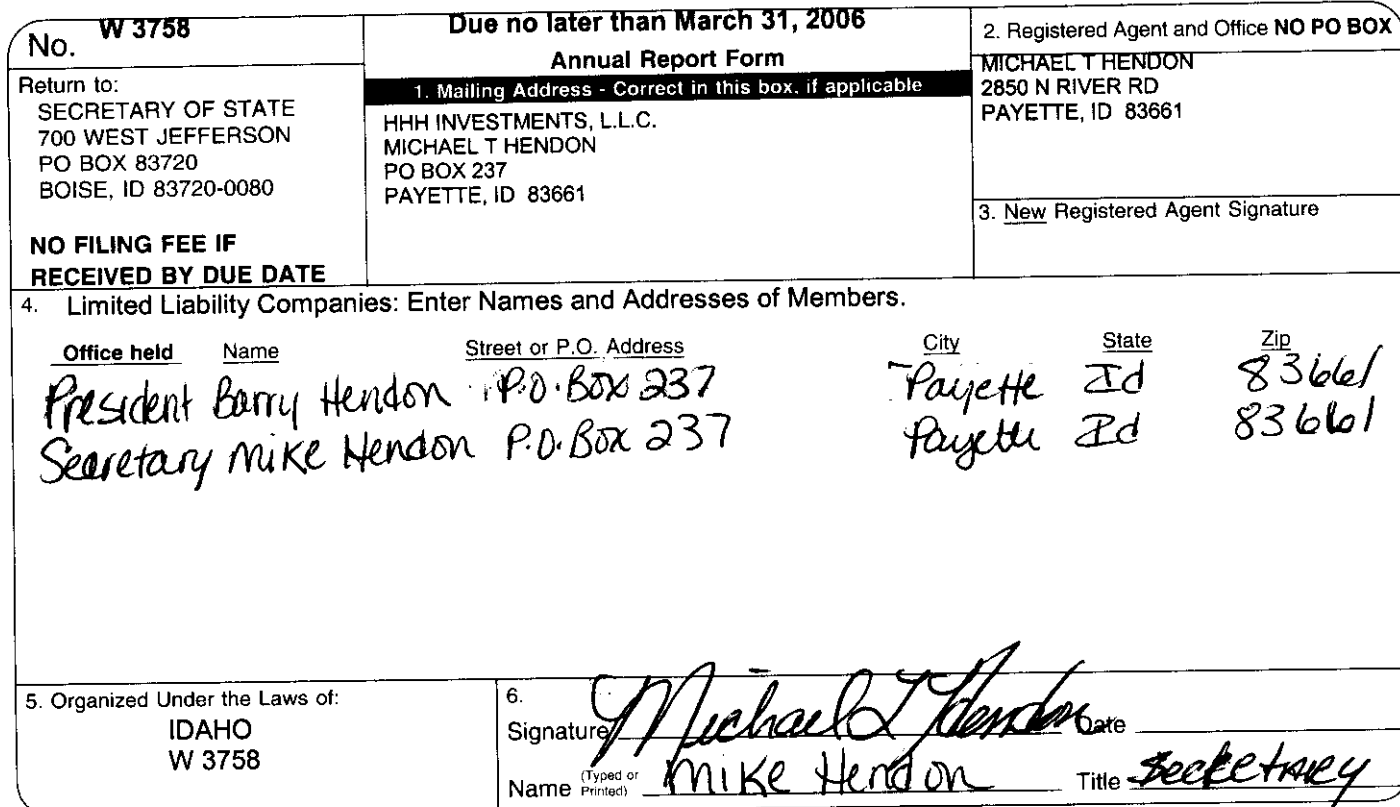 No. W 3758
Return to:
SECRETARY OF STATE
700 WEST JEFFERSON
PO BOX 83720
BOISE, ID 83720-0080
NO FILING FEE IF
RECEIVED BY DUE DATE
Due no later than March 31, 2006
Annual Report Form
1. Mailing Address - Correct in this box, if applicable
HHH INVESTMENTS, L.L.C.
MICHAEL T HENDON
PO BOX 237
PAYETTE, ID 83661
2. Registered Agent and Office NO PO BOX
MICHAEL T HENDON
2850 N RIVER RD
PAYETTE, ID 83661
3. New Registered Agent Signature
4. Limited Liability Companies: Enter Names and Addresses of Members.
Office held Name Street or P.O. Address City State Zip
President Barry Hendon P.O. Box 237 Payette Id 83661
Secretary Mike Hendon P.O. Box 237 Payette Id 83661
5. Organized Under the Laws of:
IDAHO
W 3758
6.
Signature Michael T Hendon Date
Name (Typed or Printed) Mike Hendon Title Secretary